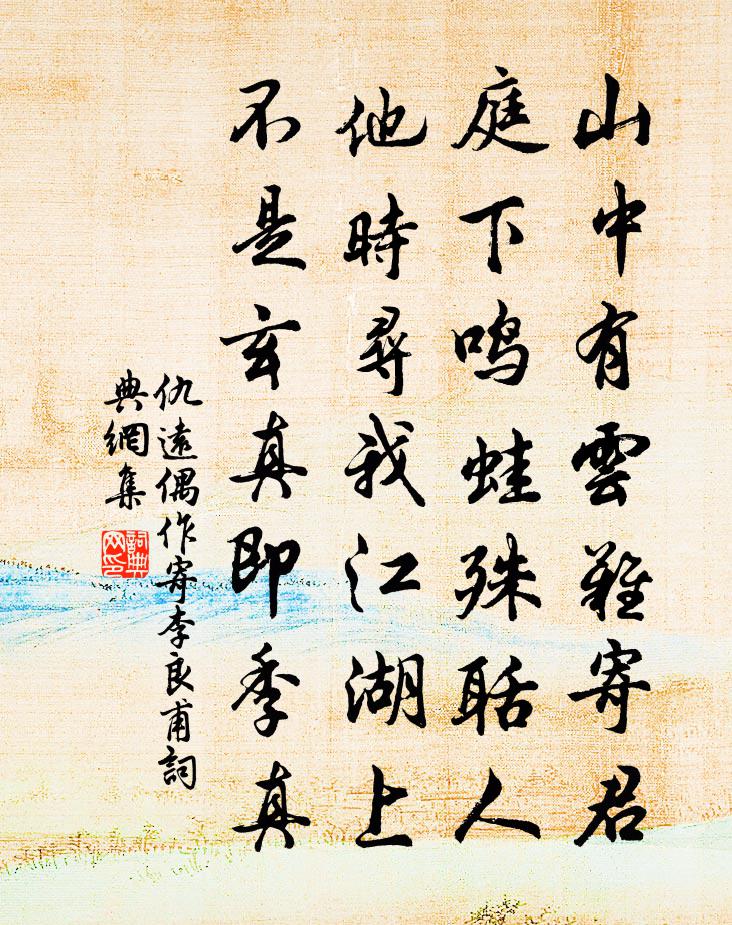 山中有雲難寄君
庭下鸣蛙殊聒人
他時尋我江湖上
不是玄真即季真
仇遠偶作寄李良甫詞
典網集
詞典
网印